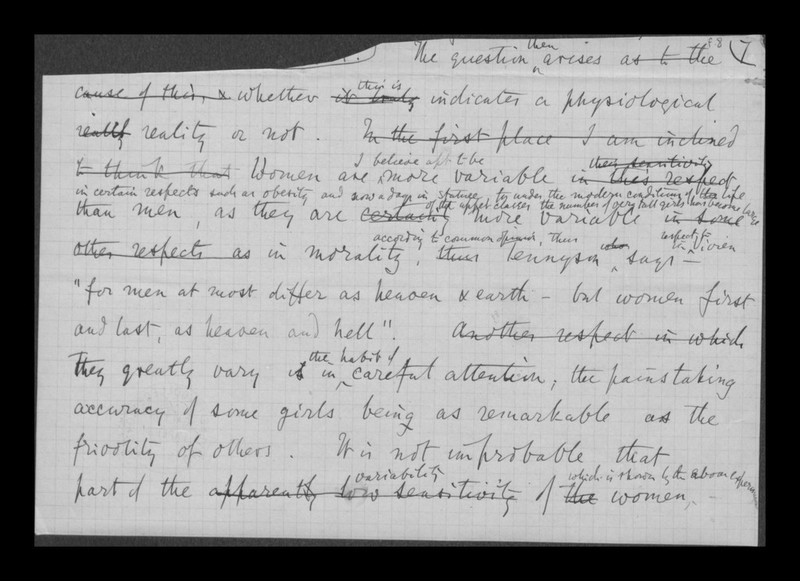 then 88 7
The question arises as to the
cause of this, & whether it truly this is indicates a physiological
really reality or not. In the first place I am inclined
I believe apt to be their sensitivity
to think that Women are more variable in this respect
in certain respects such as obesity and now a days in stature, for under the modern conditions of the life
of the upper classes the number of very tall girls has become large
than men, as they are certainly more variable in some
according to common opinion, thus respect to
other respects as in morality, thus Tennyson says — in women
"for men at most differ as heaven & earth – but women first
and last, as heaven and hell". Another respect in which
the habit of
They greatly vary is in careful attention, the painstaking
accuracy of some girls being as remarkable as the
frivolity of others. It is not improbable that
variability which is shown by the above experi
part of the apparently low sensitivity of the women,